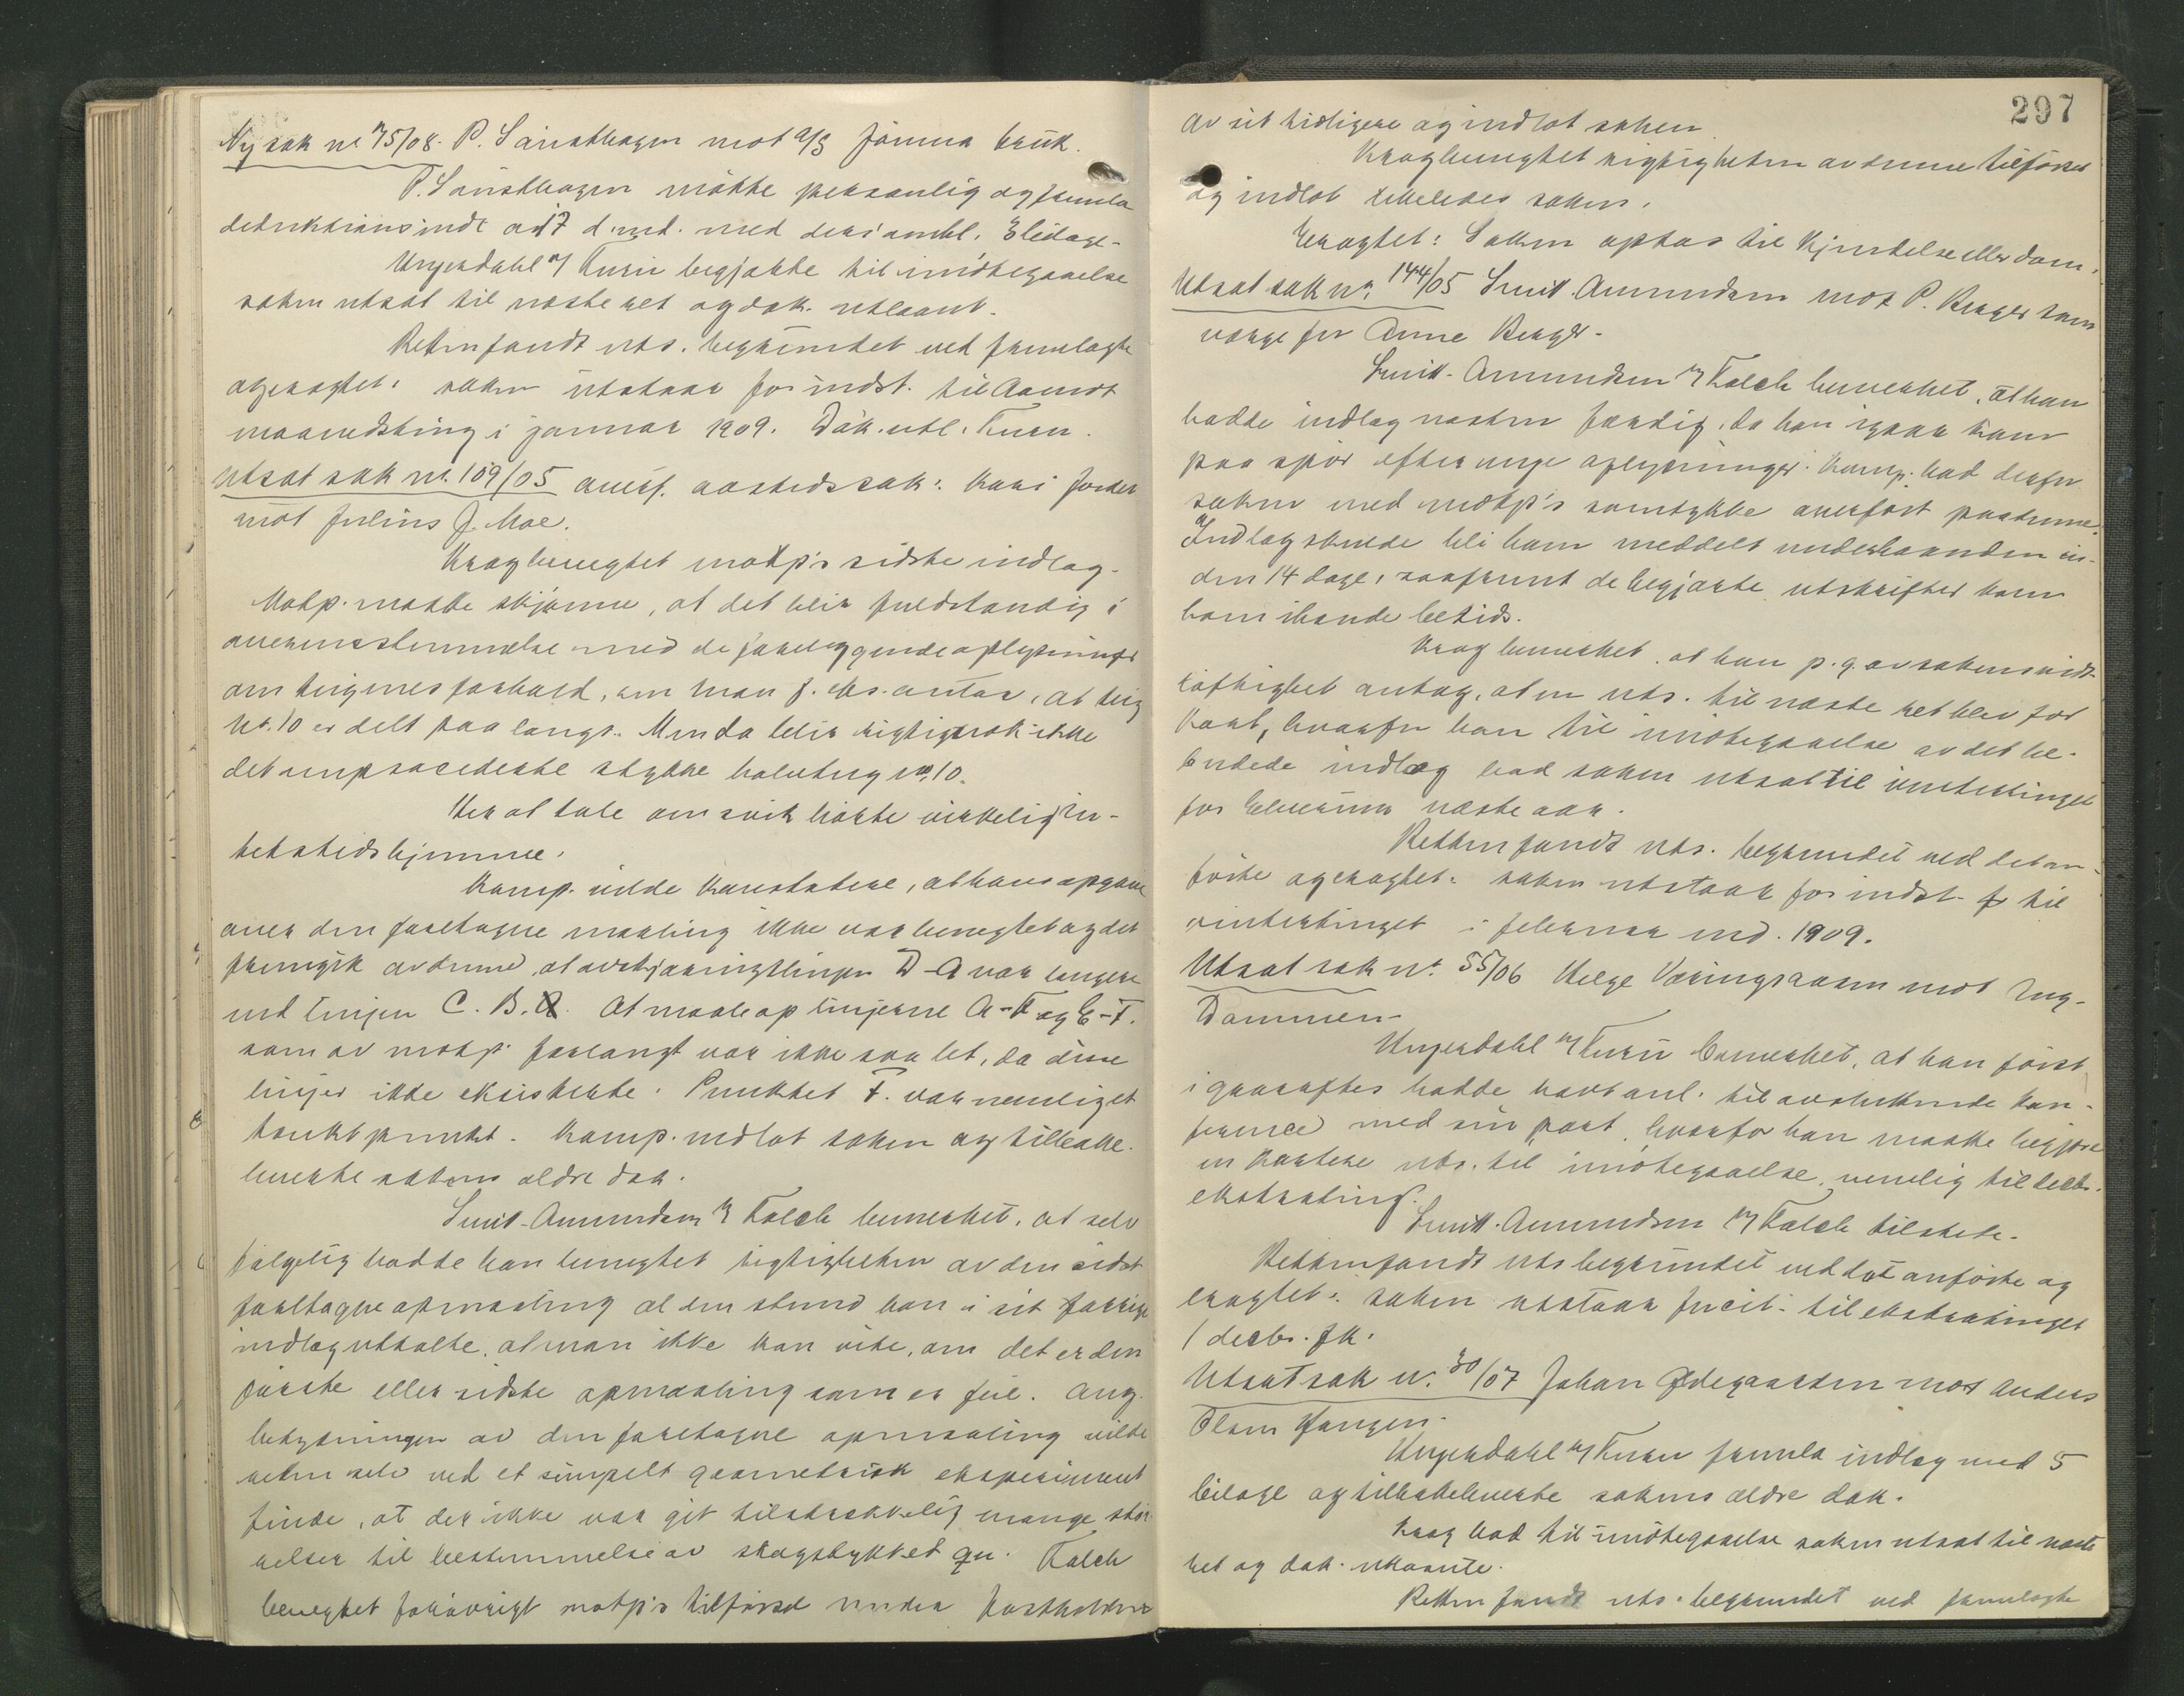 Ny sak nr 75/08. P. Sörsthagen mot A/S Jömna bruk.
P. Sörsthagen mötte personlig og fremla
deduktionsindl. av 17 d. md. med deri ombl. 3 bilage.
Ungerdahl f Kuren begjærte til imötegaaelse
saken utsat til næste ret og dok. utlaant.
Retten fandt uts. begrundet ved fremlagte
og eragtet: saken utstaar for indst. til Aamot
maanedsting i januar 1909. Dok. utl. Kuren.
Utsat sak nr. 109/05 overf. aastedssak: Kari Jordet
mot Julius J. Moe.
Krag benegtet motp's sidste indlæg.
Motp. maatte skjönne, at det blir fuldstændig i
overensstemmelse med de foreliggende oplysninger
om teigenes forhold, om man f. eks. antar, at teig
nr. 10 er delt paa langs. Men da blir rigtignok ikke
det omprocederte stykke halvteig nr. 10.
Her at tale om svik hörte virkelig in-
tetsteds hjemme.
Komp. vilde konstatere, at hans opgave
over den foretagne maaling ikke var benegtet og det
fremgik av denne, at avskjæringslinjen D-A var længere
end linjen C. B. At maale op linjerne A-F og E-F.
som av motp. forlangt var ikke saa let, da disse
linjer ikke eksisterte. Punktet F. var nemlig et
tænkt punkt. Komp. indlot saken og tilbake-
leverte sakens ældre dok.
Smit-Amundsen f Falch bemerket, at selv
fölgelig hadde han benegtet rigtigheten av den sidst
foretagne opmaaling al den stund han i sit forrige
indlæg uttalte, at man ikke kan vite, om det er den
förste eller sidste opmaaling som er feil. Ang.
betydningen av den foretagne opmaaling vilde
retten selv ved et simpelt geometrisk eksperiment
finde, at der ikke var git tilstrækkelig mange stör-
relser til bestemmelse av skogstykket qu. Falch
benegtet forövrigt motp's tilförsel under fastholden
297
av sit tidligere og indlot saken.
Krag benegtet rigtigheten av denne tilförsel
og indlot likeledes saken.
Eragtet: Saken optas til kjendelse eller dom.
Utsat sak nr. 144/05 Smit Amundsen mot P. Berger som
værge for Anne Berger.
Smit-Amundsen f Falch bemerket, at han
hadde indlæg næsten færdig, da han igaar kom
paa spor efter nye oplysninger. Komp. bad derfor
saken med motp's samtykke overfört paa denne.
Indlæg skulde bli ham meddelt underhaanden in-
den 14 dage, saafremt de begjærte utskrifter kom
ham ihænde betids.
Krag bemerket, at han p. g. av sakens vidt-
löftighet antog, at en uts. til næste ret blev for
kort, hvorfor han til imötegaaelse av det be-
budede indlæg bad saken utsat til vintertinget
for Elverum næste aar.
Retten fandt uts. begrundet ved det an-
förte og eragtet: saken utstaar for indst. til
vintertinget i februar md. 1909.
Utsat sak nr. 55/06 Helge Væringsaasen mot Ing-
Dammen.
Ungerdahl f Kuren bemerket, at han först
igaaraftes hadde havt anl. til avsluttende kon-
ferance med sin part, hvorfor han maatte begjære
en kortere uts. til imötegaaelse, nemlig til decbr.
ekstrating.
Smitt-Amundsen f Falch tilstede.
Retten fandt uts begrundet ved det anförte og
eragtet: saken utstaar fricit. til ekstratinget
1 decbr. fk.
Utsat sak nr. 30/07 Johan Ödegaarden mot Anders
Olsen Hangen.
Ungerdahl f Kuren fremla indlæg med 5
bilage og tilbakeleverte sakens ældre dok.
Krag bad til imötegaaelse saken utsat til næste
ret og dok. utlaante.
Retten fandt uts. begrundet ved fremlagte